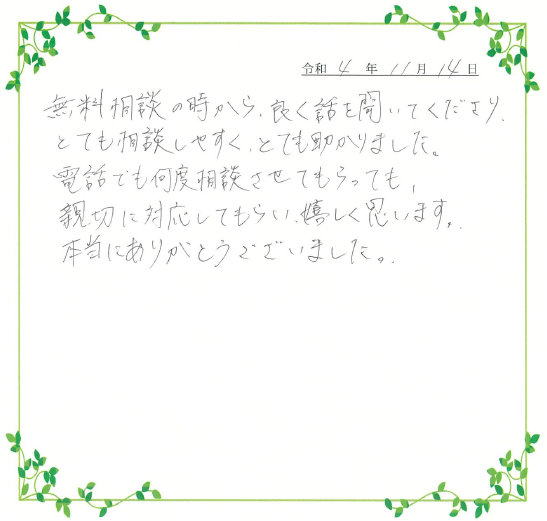 令和 4 年 11 月 14 日
無料相談の時から、良く話を聞いてくださり、
とても相談しやすく、とても助かりました。
電話でも何度相談させてもらっても、
親切に対応してもらい、嬉しく思います。
本当にありがとうございました。